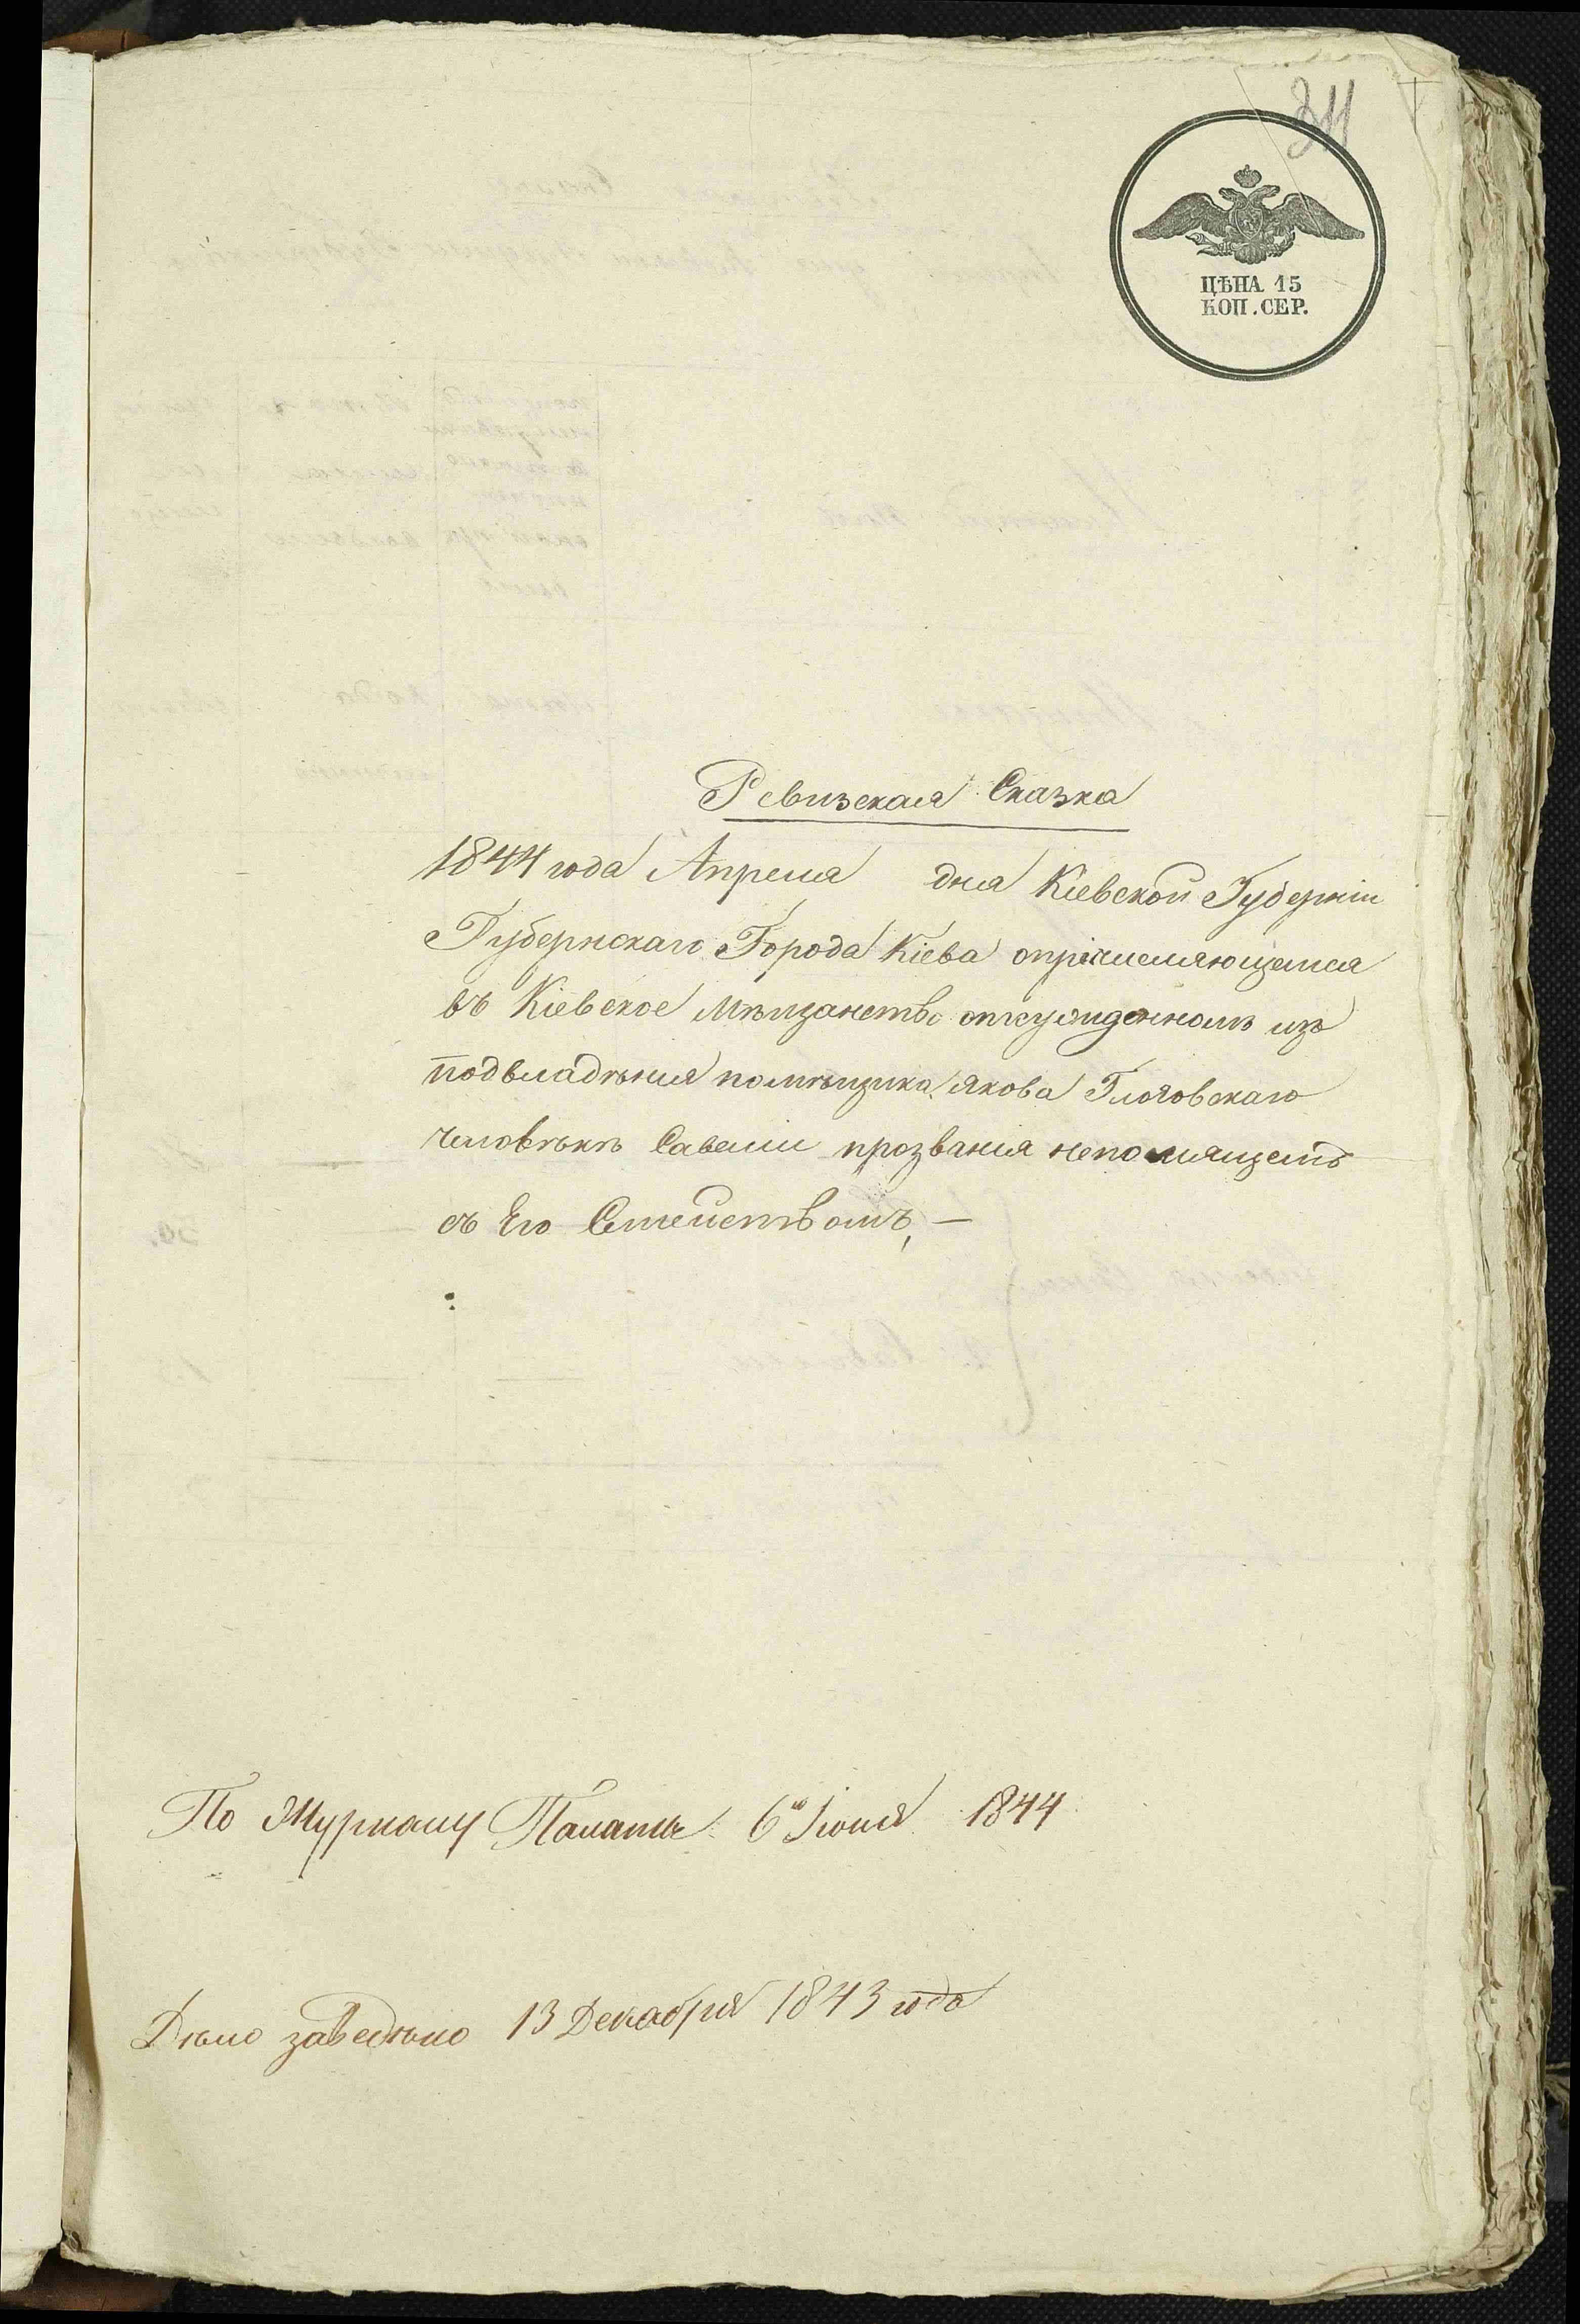 311
ЦѢНА 15
КОП. СЕР.
Ревизская Сказка
1844 года Апреля дня Кіевской Губерніи
Губернскаго Города Кіева опричисляющемся
въ Кіевское Мѣщанство отсужденномъ изъ
подвладѣнія помѣщика Якова Глоговскаго
человѣкѣ Савеліи прозванія непомнящемъ
съ Его Семействомъ, —
По Журналу Палаты 6го Іюня 1844
Дѣло заведено 13 Декабря 1843 года